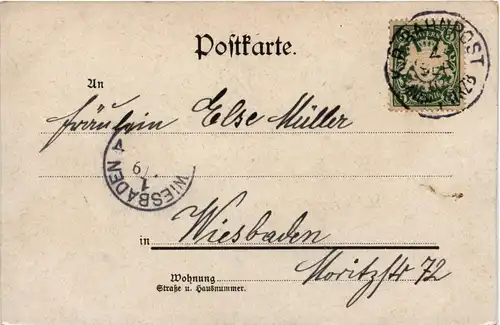 Postkarte.
K.B. BAHNPOST
An
Fräulein Else Müller
WIESBADEN
1
in Wiesbaden
Wohnung Moritzstr 72
Straße u. Hausnummer.